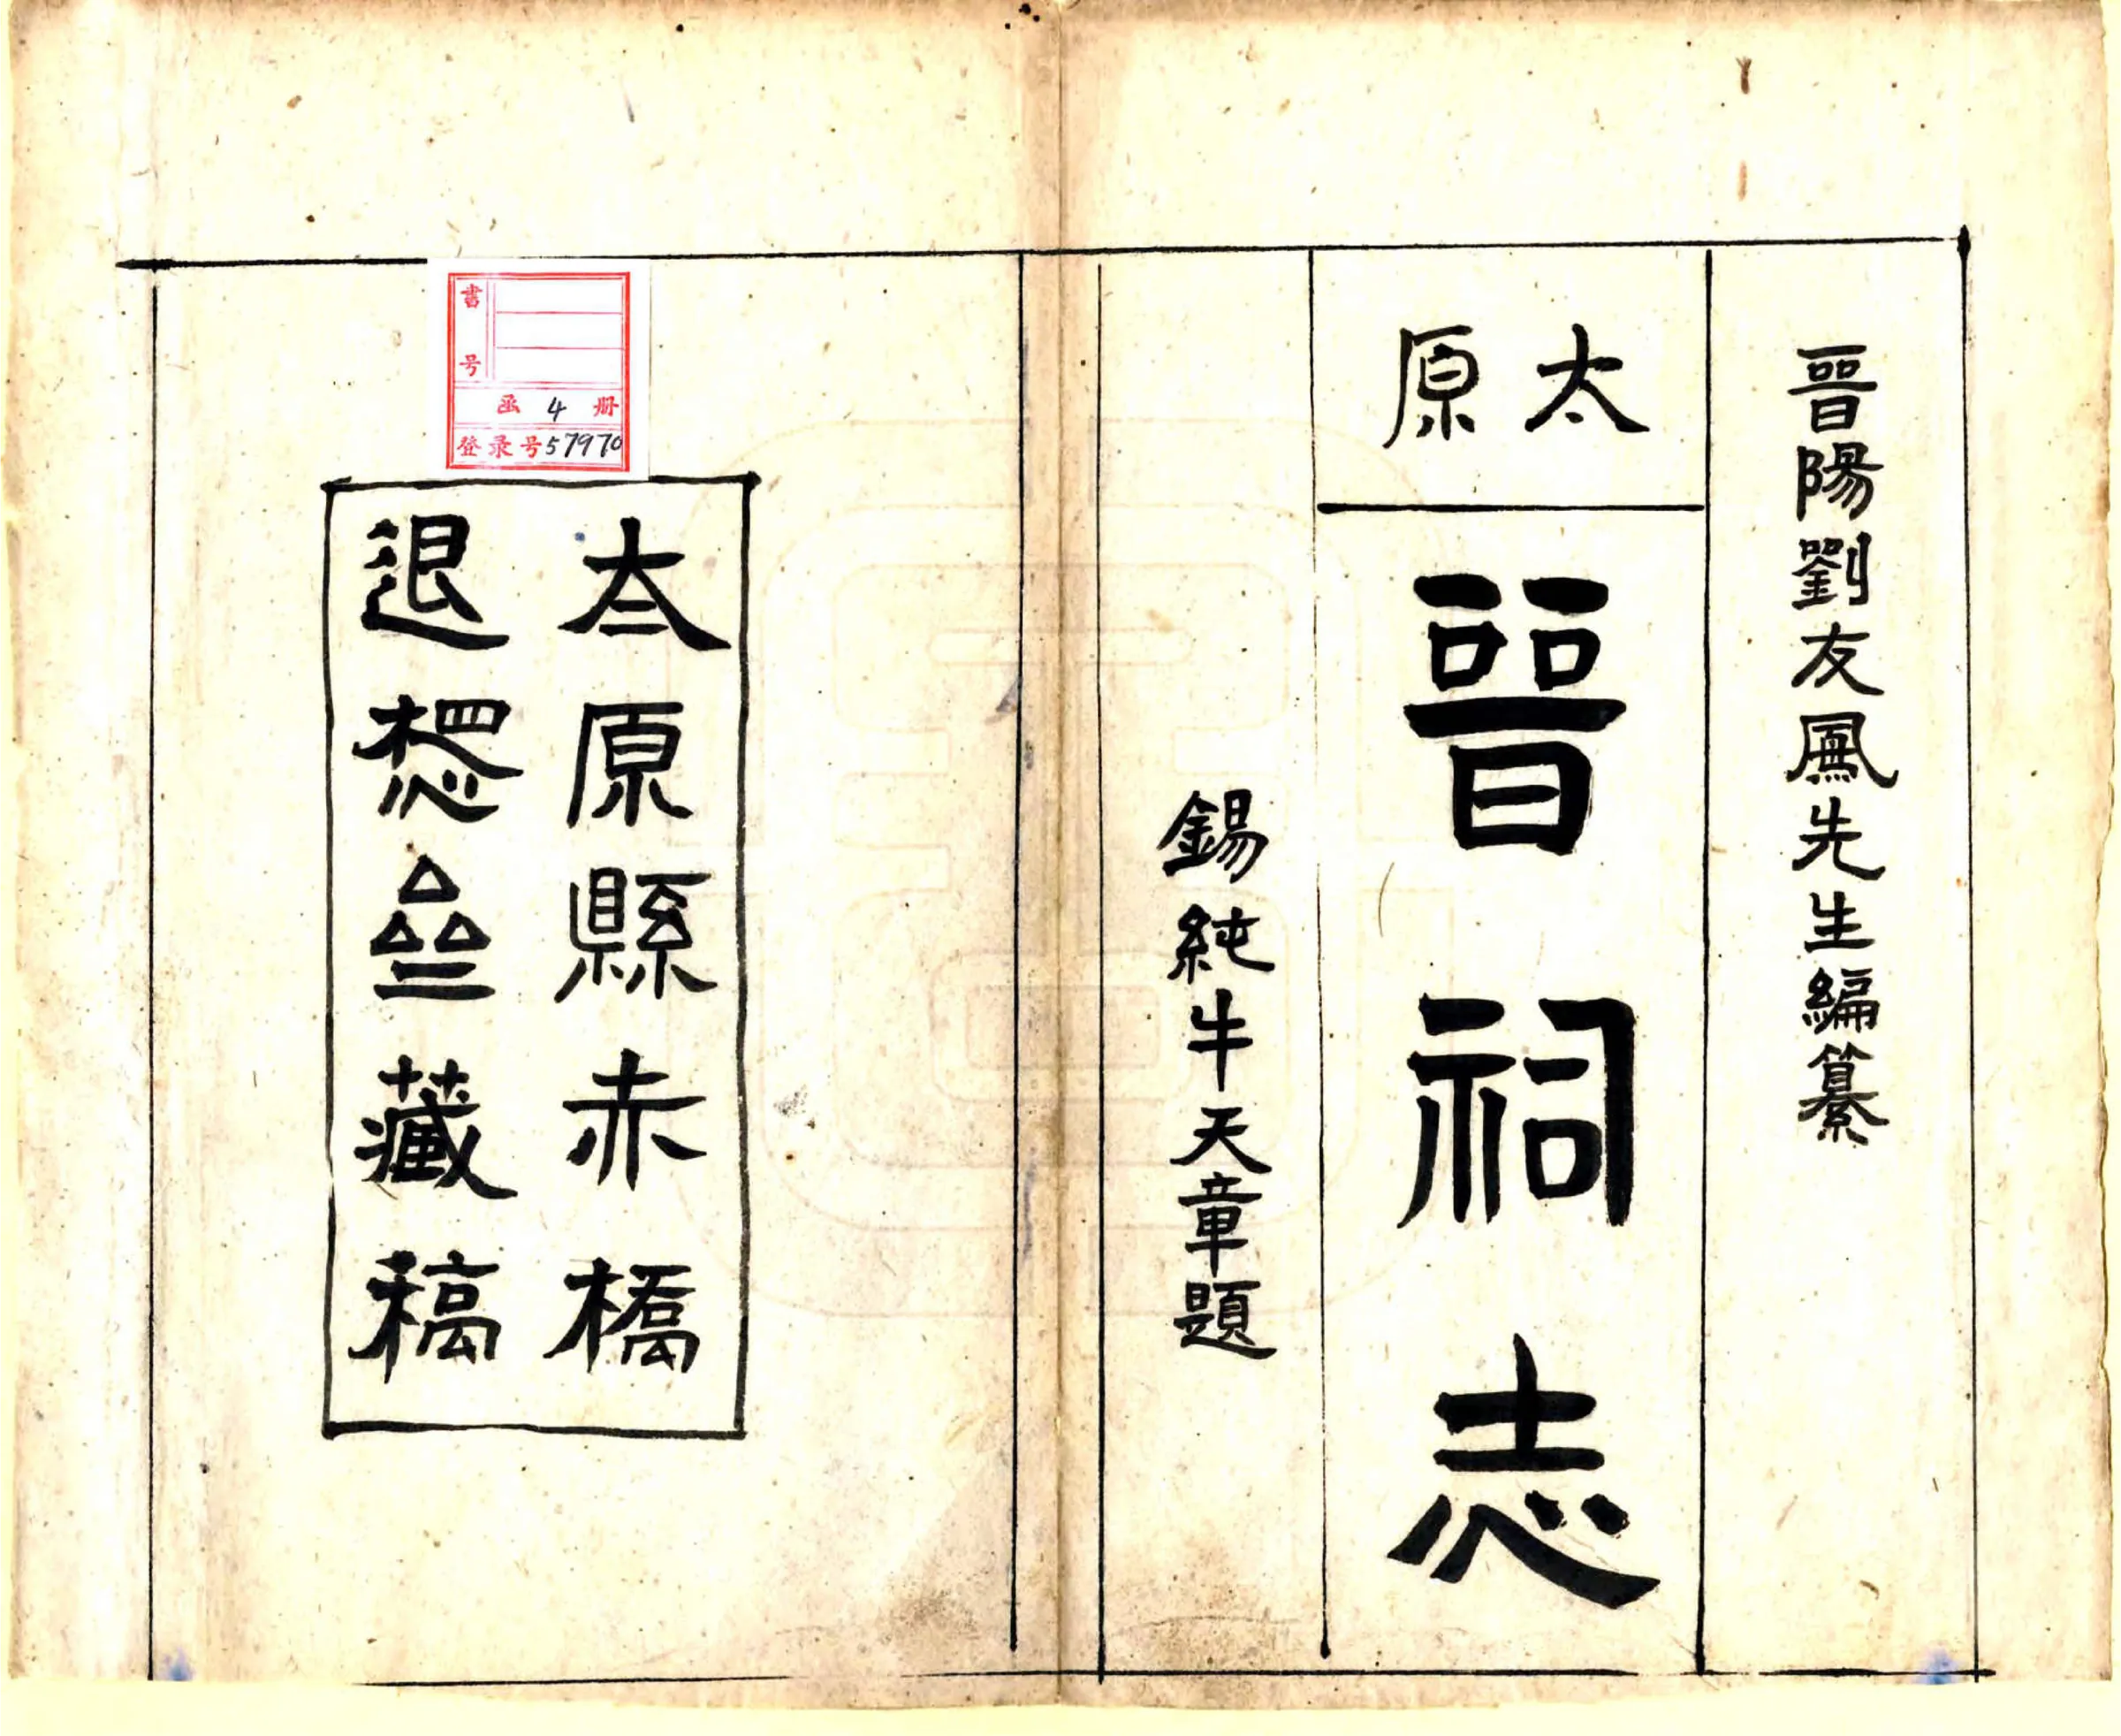 晉陽劉友鳳先生編纂
太原
晉祠志
錫純牛天章題
太原縣赤橋
退想亝藏稿
書号
函 4 册
登录号57970